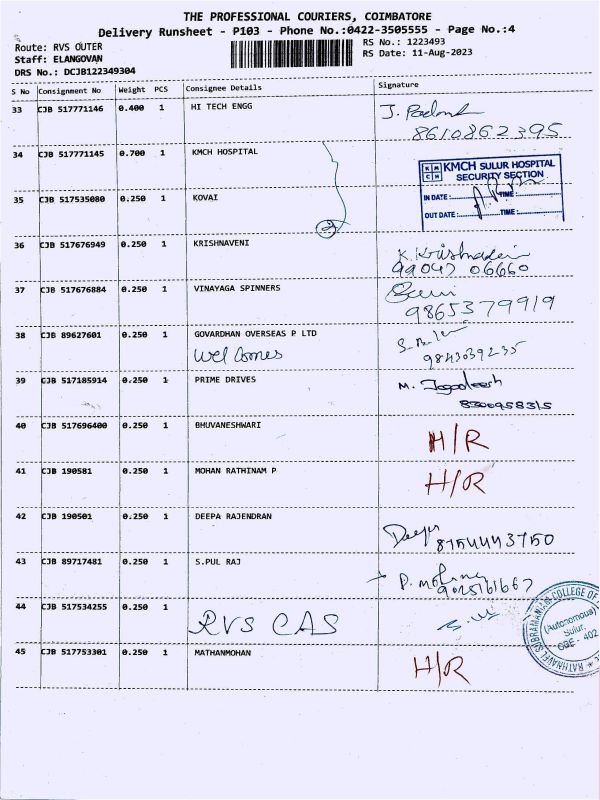 THE PROFESSIONAL COURIERS, COIMBATORE
Delivery Runsheet - P103 - Phone No.:0422-3505555 - Page No.:4
Route: RVS OUTER
RS No.: 1223493
Staff: ELANGOVAN
RS Date: 11-Aug-2023
DRS No.: DCJB122349304
S No Consignment No Weight PCS Consignee Details Signature
33 CJB 517771146 0.400 1 HI TECH ENGG J.
8610862395
34 CJB 517771145 0.700 1 KMCH HOSPITAL
KMCH SULUR HOSPITAL
SECURITY SECTION
IN DATE: TIME:
OUT DATE: TIME:
35 CJB 517535080 0.250 1 KOVAI
2
36 CJB 517676949 0.250 1 KRISHNAVENI K. Krishnaveni
99047 06660
37 CJB 517676884 0.250 1 VINAYAGA SPINNERS
9865379919
38 CJB 89627601 0.250 1 GOVARDHAN OVERSEAS P LTD
Wel Comes
9843039235
39 CJB 517185914 0.250 1 PRIME DRIVES M. Jagadeesh
8300958315
40 CJB 517696400 0.250 1 BHUVANESHWARI H/R
41 CJB 190581 0.250 1 MOHAN RATHINAM P H/R
42 CJB 190501 0.250 1 DEEPA RAJENDRAN Deepa
8754443750
43 CJB 89717481 0.250 1 S.PUL RAJ
P.
9025161667
44 CJB 517534255 0.250 1 RVS CAS
RATHNAVEL SUBRAMANIAM COLLEGE OF
(Autonomous)
Sulur,
CBE - 402
45 CJB 517753301 0.250 1 MATHANMOHAN H/R